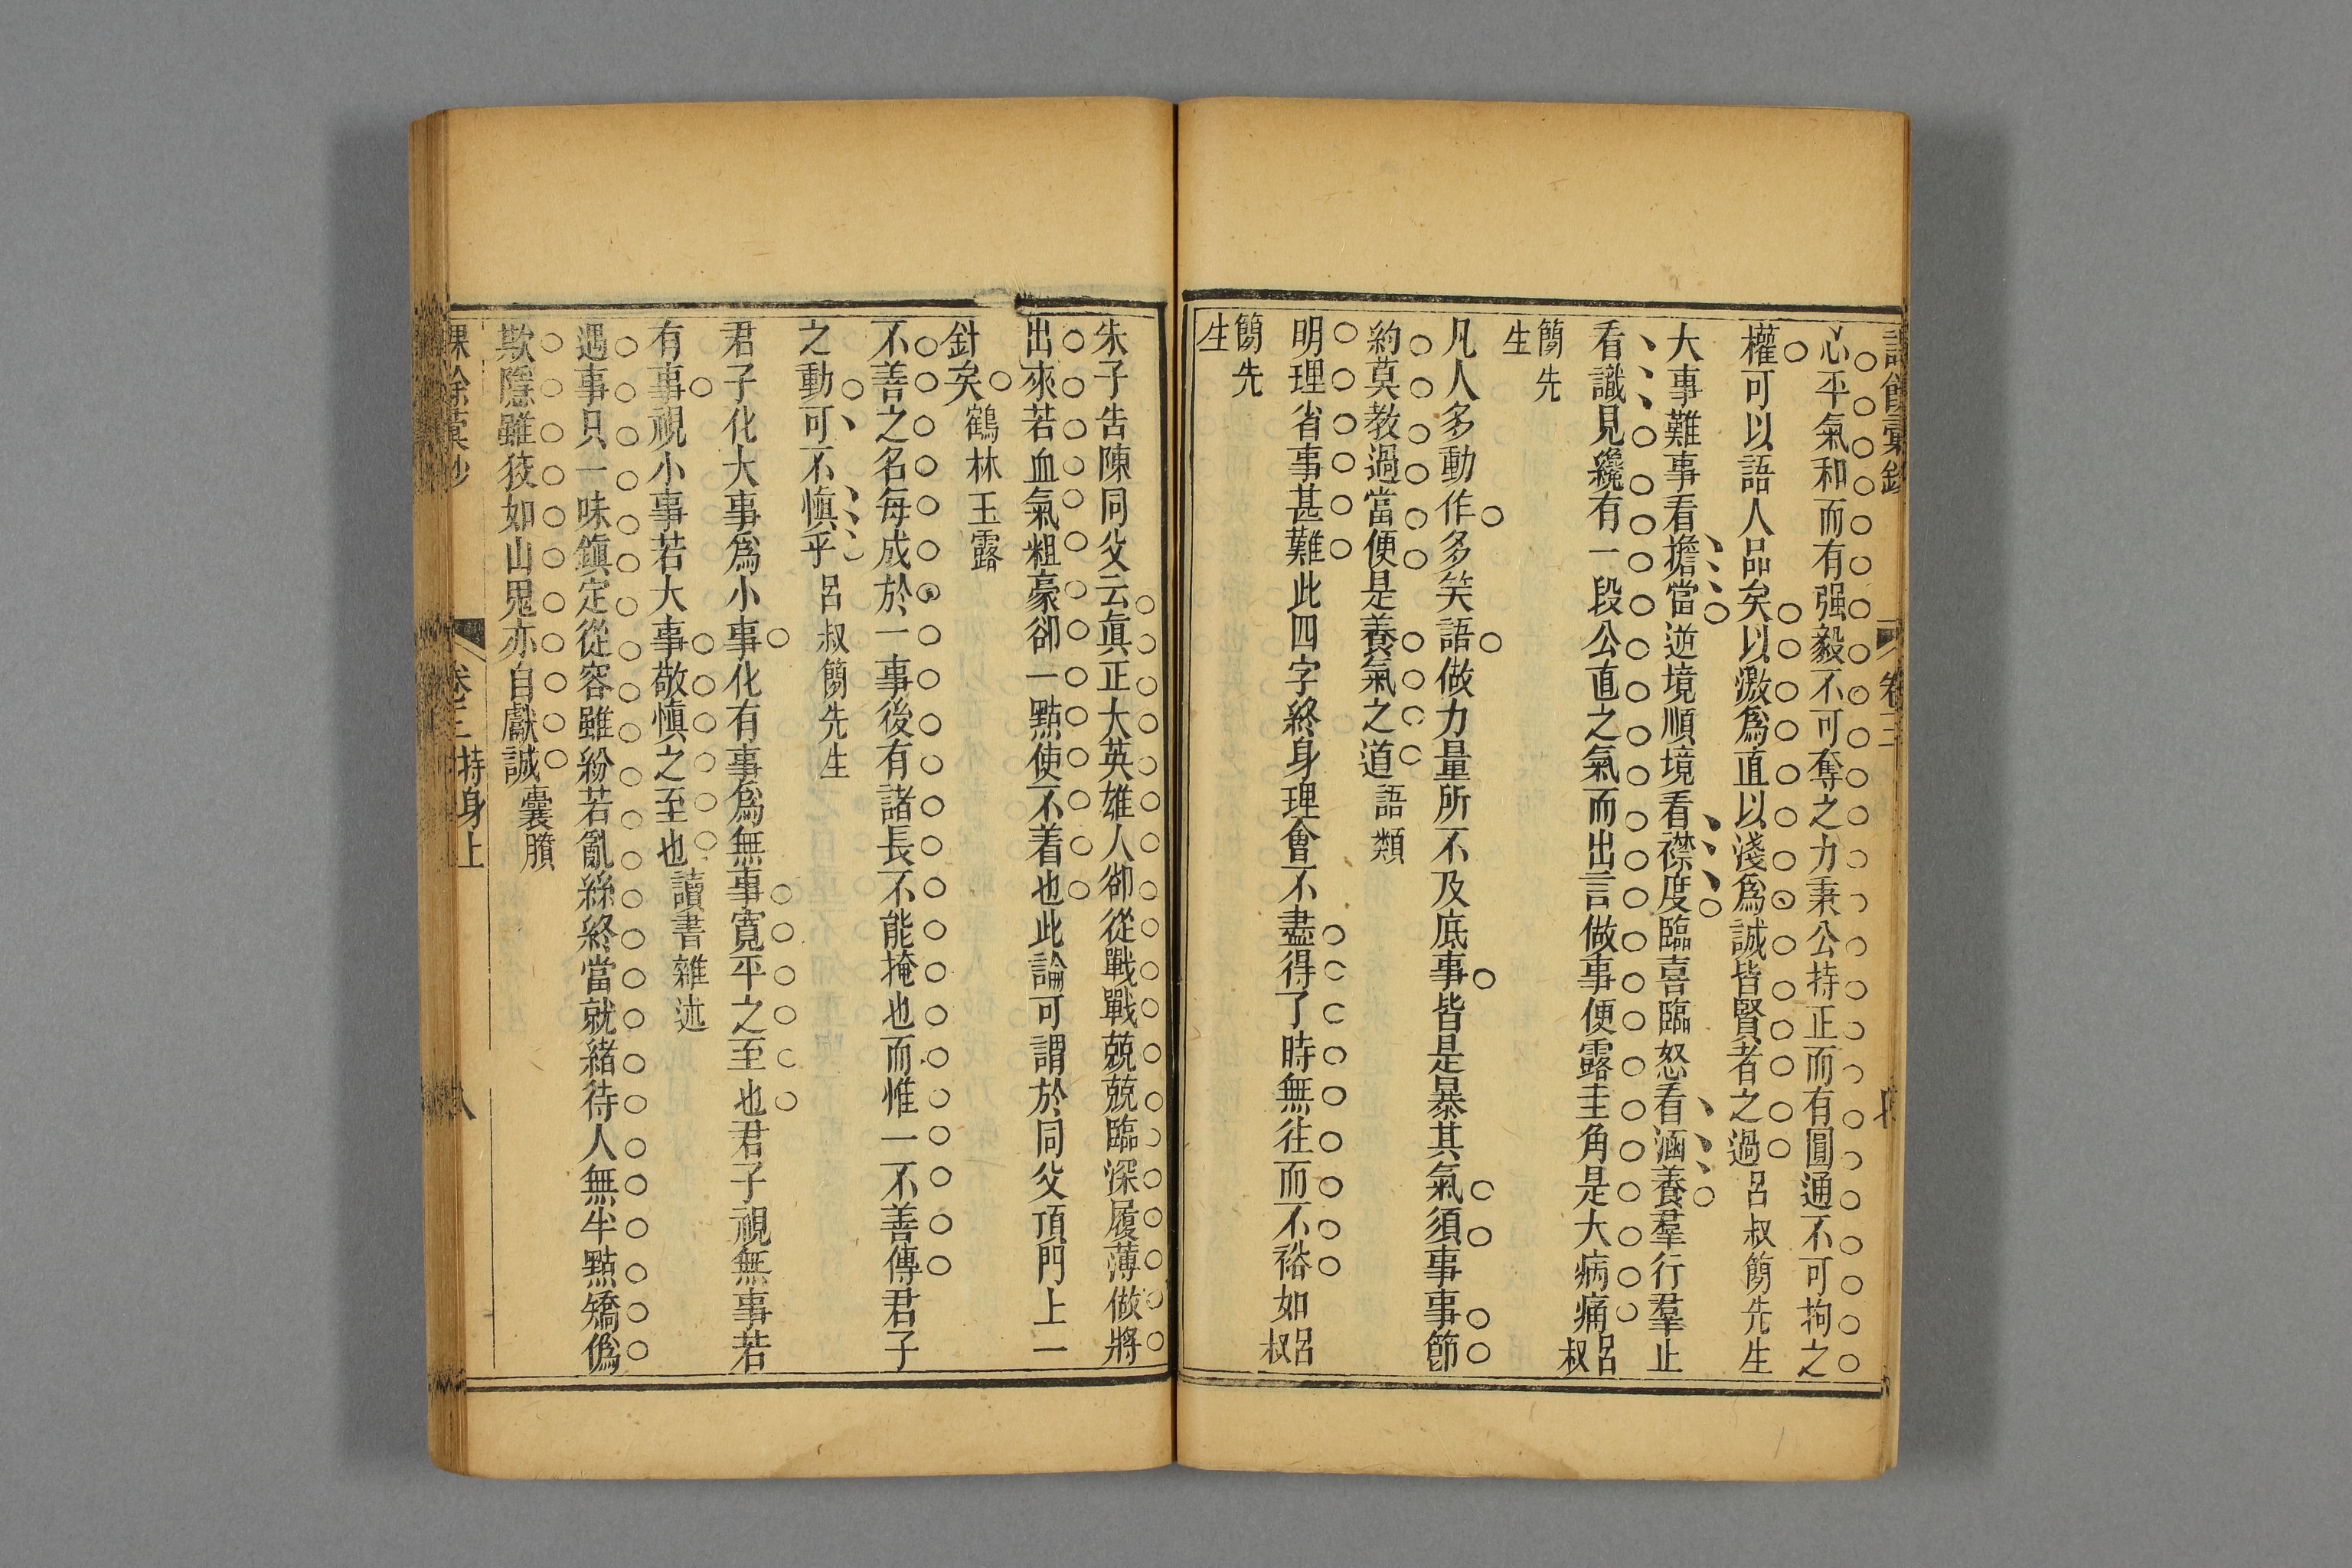 卷三
心平氣和而有强毅不可奪之力秉公持正而有圓通不可拘之
權可以語人品矣以激爲直以淺爲誠皆賢者之過呂叔簡先生
大事難事看擔當逆境順境看襟度臨喜臨怒看涵養羣行羣止
看識見纔有一段公直之氣而出言做事便露圭角是大病痛呂叔
簡先生
凡人多動作多笑語做力量所不及底事皆是暴其氣須事事節
約莫教過當便是養氣之道語類
明理省事甚難此四字終身理會不盡得了時無往而不裕如呂叔
簡先生
朱子告陳同父云眞正大英雄人卻從戰戰兢兢臨深履薄做將
出來若血氣粗豪卻一點使不着也此論可謂於同父頂門上一
針矣鶴林玉露
不善之名每成於一事後有諸長不能掩也而惟一不善傳君子
之動可不愼乎呂叔簡先生
君子化大事爲小事化有事爲無事寬平之至也君子視無事若
有事視小事若大事敬愼之至也讀書雜述
遇事只一味鎭定從容雖紛若亂絲終當就緒待人無半點矯僞
欺隱雖狡如山鬼亦自獻誠囊臢
卷三 持身上 八